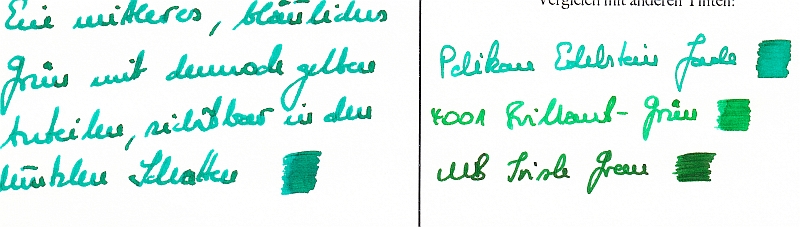 Ein mittleres, bläuliches
Grün mit dennoch gelben
Anteilen, sichtbar in den
dunklen Schatten
Vergleich mit anderen Tinten:
Pelikan Edelstein Jade
4001 Brillant-Grün
MB Irish Green